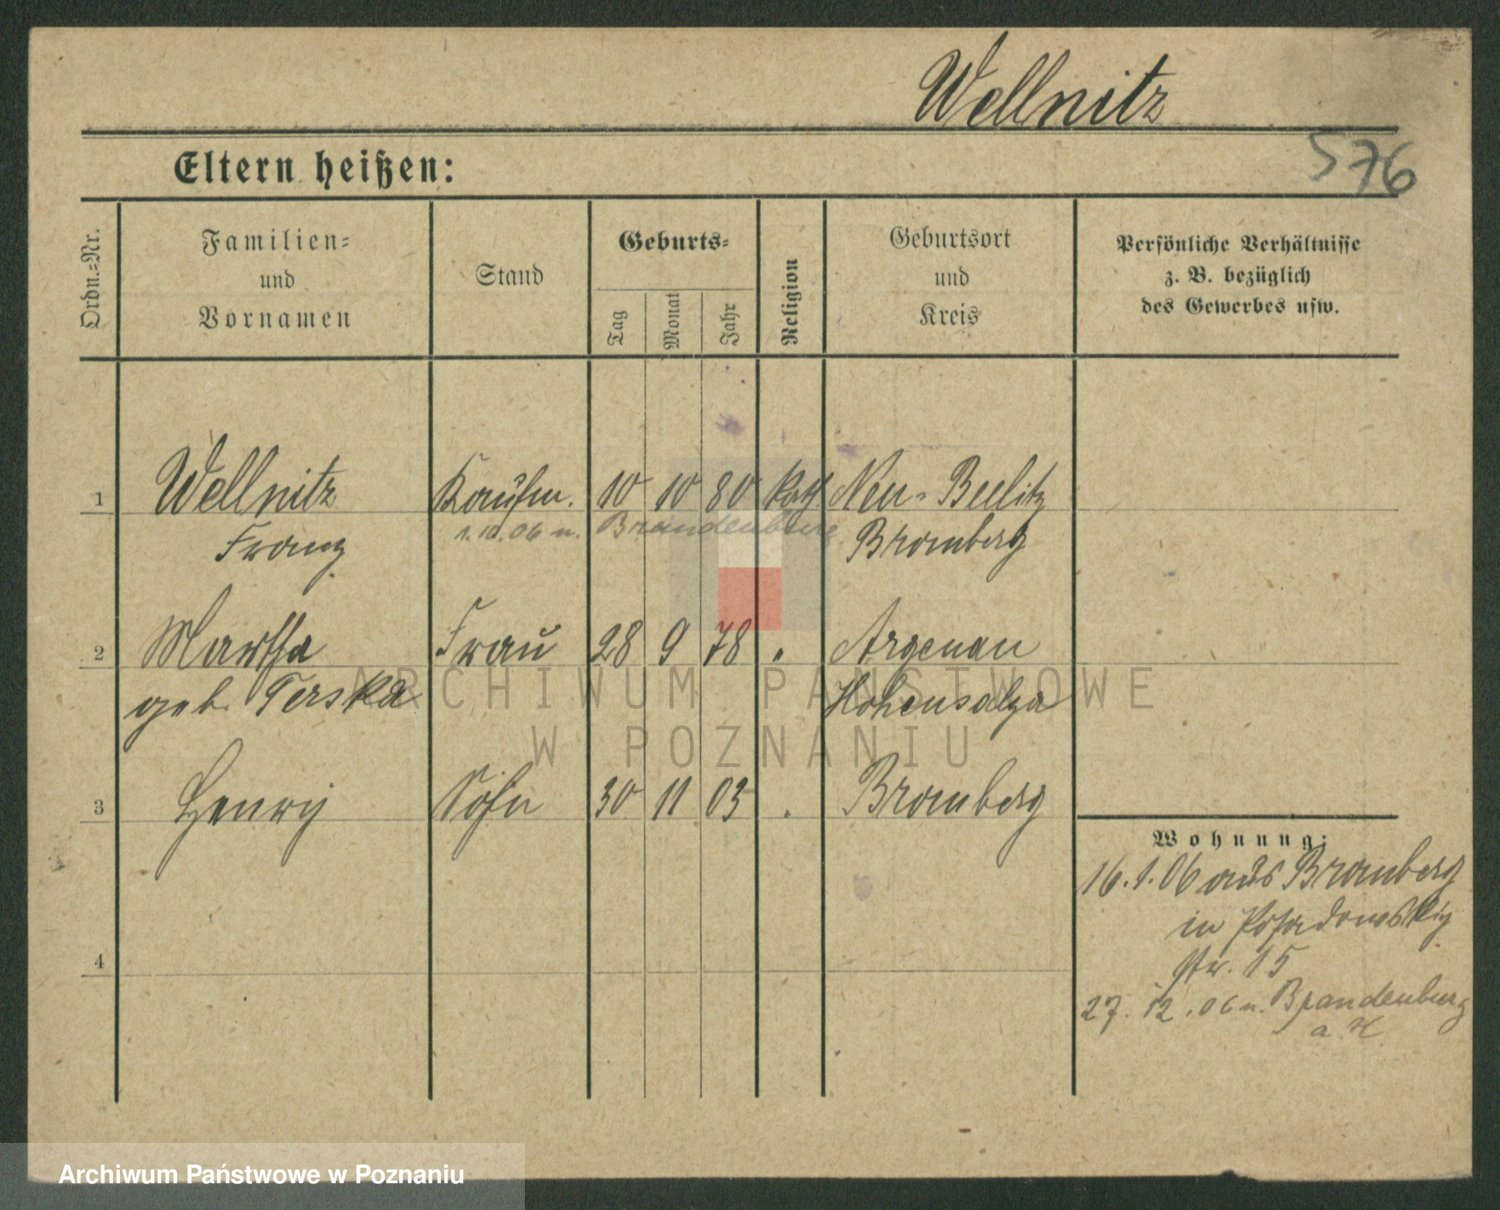 Wellnitz
576
Eltern heißen:
Ordn.=Nr.
Familien=
und
Vornamen
Stand
Geburts=
Tag
Monat
Jahr
Religion
Geburtsort
und
Kreis
Persönliche Verhältnisse
z. B. bezüglich
des Gewerbes usw.
1 Wellnitz Kaufm. 10 10 80 kath Neu-Beelitz
Franz 1.10.06 n. Brandenburg Bromberg
2 Martha Frau 28 9 78 " Argenau
geb. Terska Hohensalza
3 Henry Sohn 30 11 03 " Bromberg
4
Wohnung:
16.1.06 aus Bromberg
in Posadowsky
str. 15
27.12.06 n. Brandenburg
a. H.
ARCHIWUM PAŃSTWOWE
W POZNANIU
Archiwum Państwowe w Poznaniu